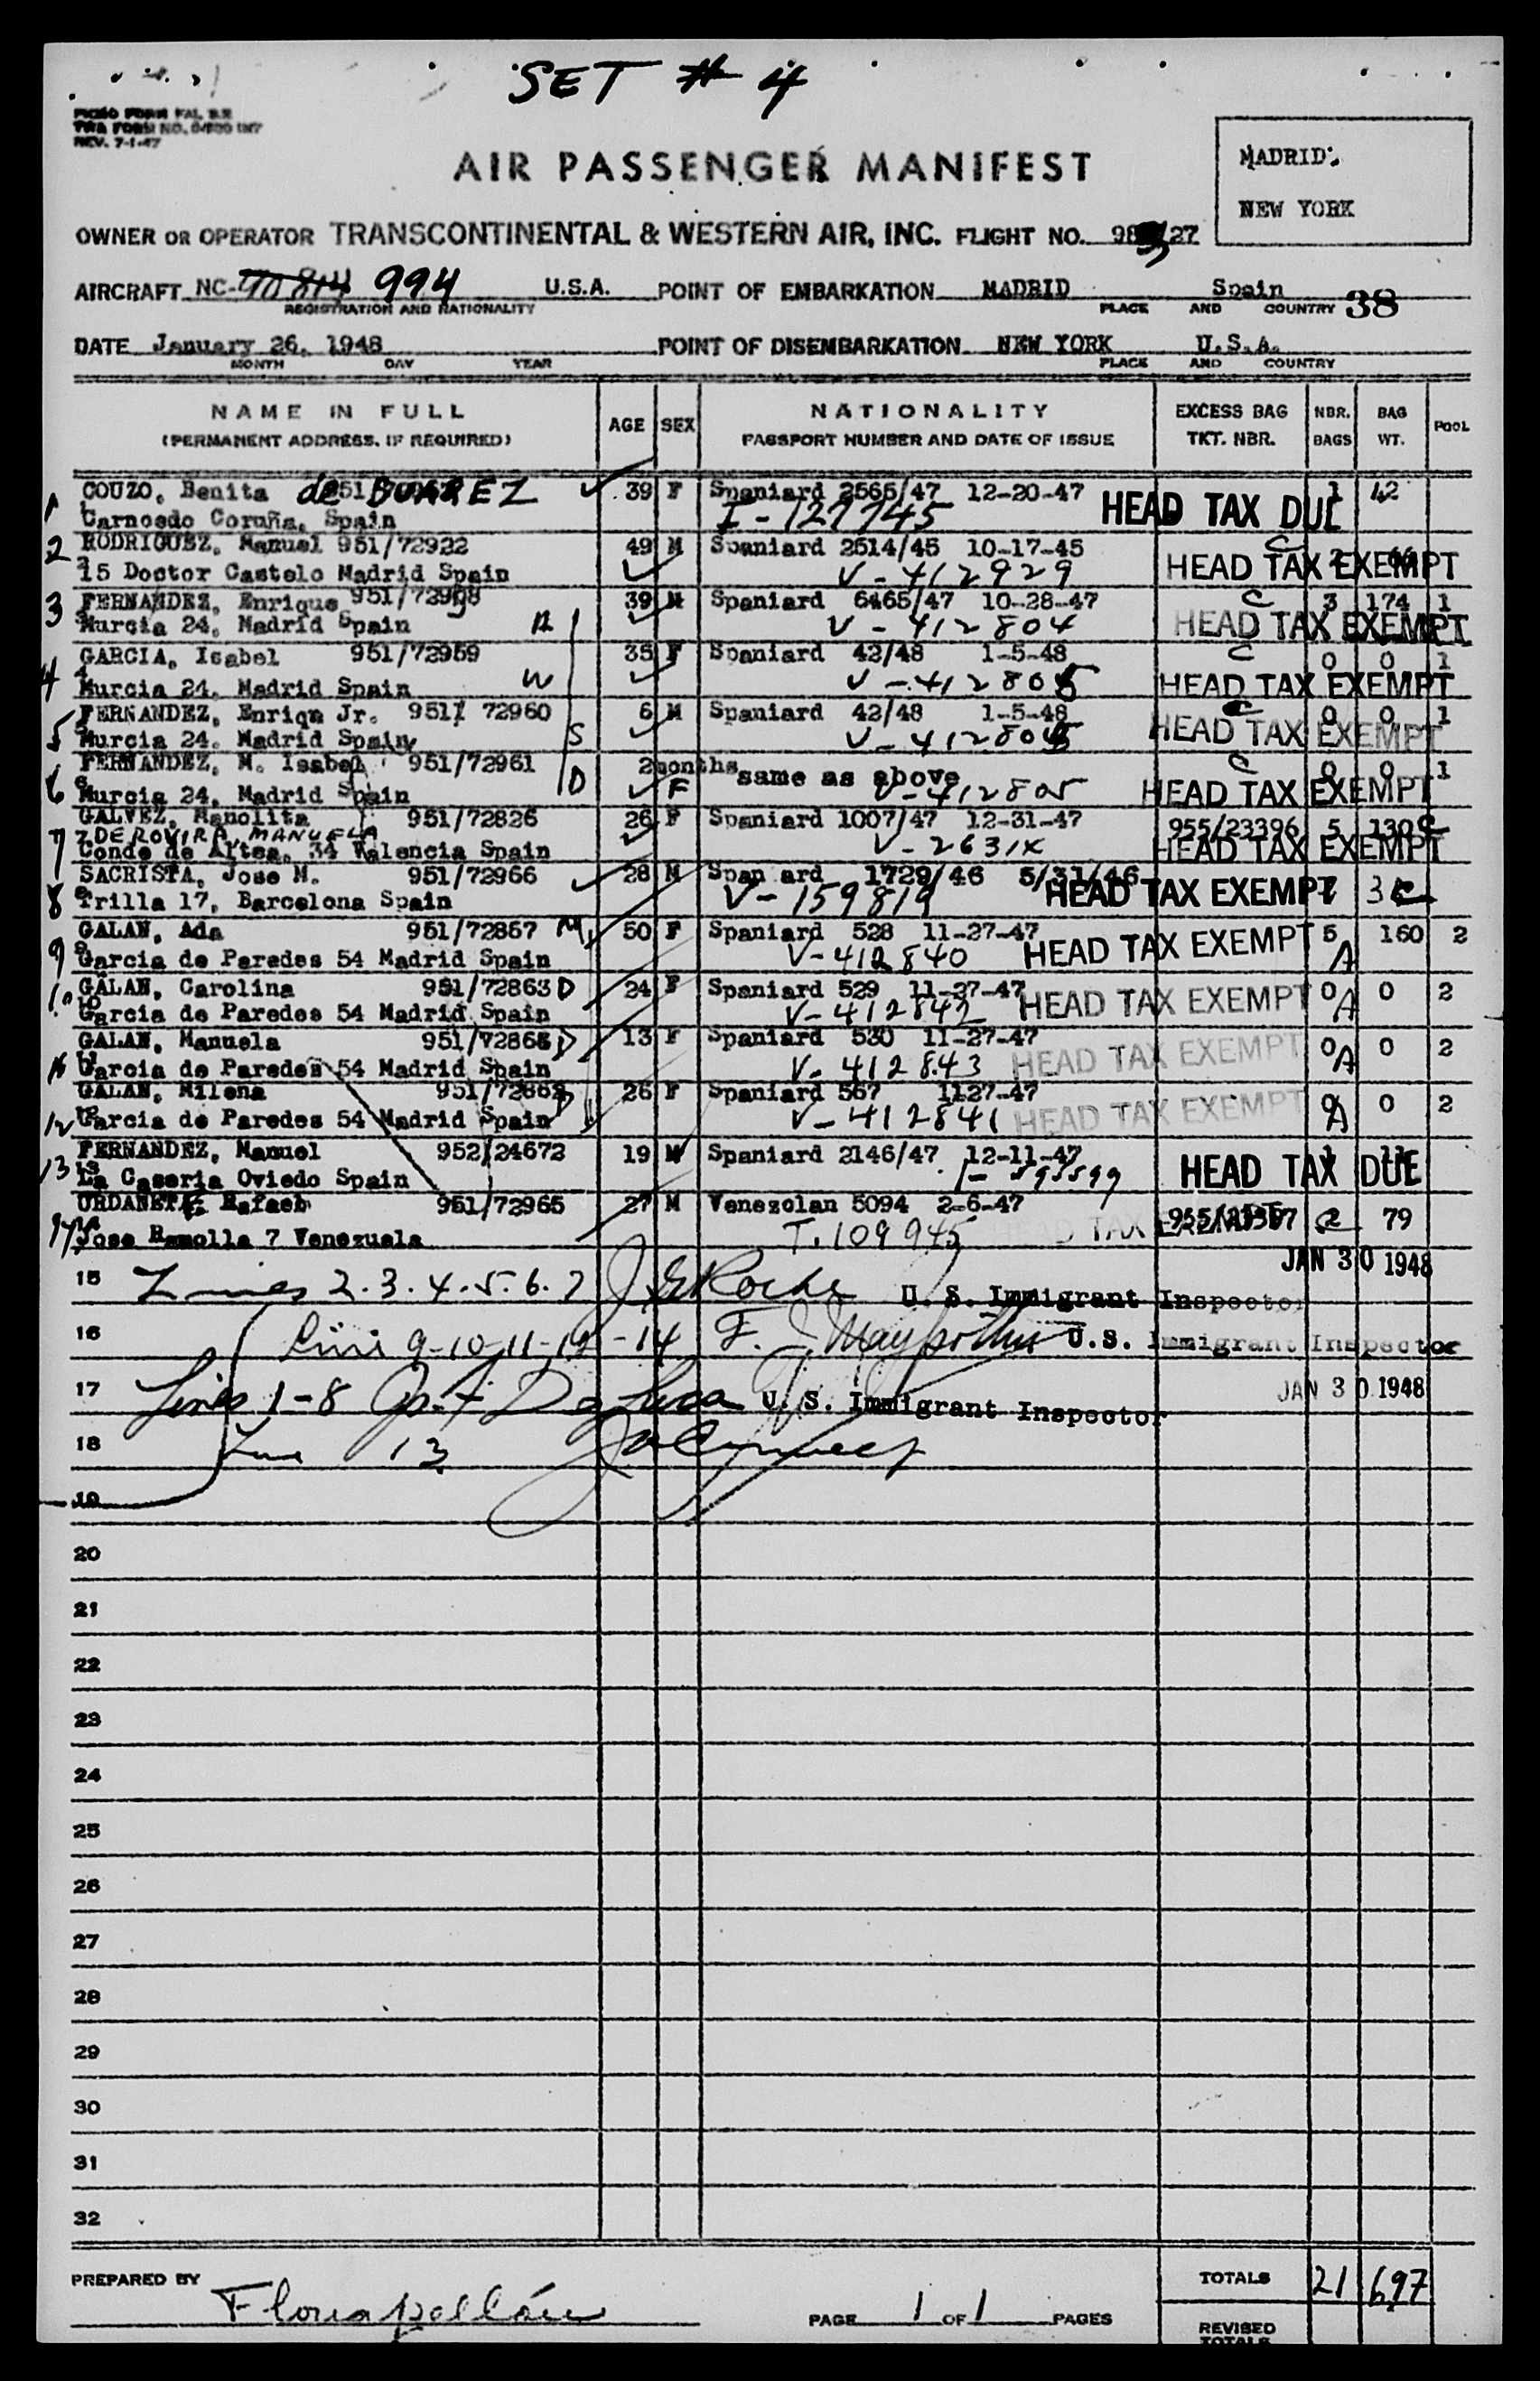 SET # 4
REV. 7-1-47
AIR PASSENGER MANIFEST
MADRID
NEW YORK
OWNER OR OPERATOR TRANSCONTINENTAL & WESTERN AIR, INC. FLIGHT NO. 27
AIRCRAFT NC- 994 U.S.A. POINT OF EMBARKATION MADRID Spain 38
REGISTRATION AND NATIONALITY PLACE AND COUNTRY
DATE January 26, 1948 POINT OF DISEMBARKATION NEW YORK U.S.A.
MONTH DAY YEAR PLACE AND COUNTRY
NAME IN FULL AGE SEX NATIONALITY EXCESS BAG NBR. BAG POOL
(PERMANENT ADDRESS, IF REQUIRED) PASSPORT NUMBER AND DATE OF ISSUE TKT. NBR. BAGS WT.
1 COUZO, Benita de 39 F Spaniard 2565/47 12-20-47 1 42
Carnoedo Coruña, Spain I-127745 HEAD TAX DUE
2 RODRIGUEZ, Manuel 951/72922 49 M Spaniard 2514/45 10-17-45 C 2
15 Doctor Castelo Madrid Spain V-412929 HEAD TAX EXEMPT
3 FERNANDEZ, Enrique 39 M Spaniard 6465/47 10-28-47 C 3 174 1
Murcia 24, Madrid Spain V-412804 HEAD TAX EXEMPT
4 GARCIA, Isabel 951/72959 35 F Spaniard 42/48 1-5-48 C 0 0 1
Murcia 24, Madrid Spain W V-412805 HEAD TAX EXEMPT
5 FERNANDEZ, Enriqn Jr. 951/ 72960 6 M Spaniard 42/48 1-5-48 0 0 1
Murcia 24, Madrid Spain S V-412805 HEAD TAX EXEMPT
6 FERNANDEZ, M. Isabel 951/72961 2months same as above C 0 0 1
Murcia 24, Madrid Spain D F V-412805 HEAD TAX EXEMPT
7 GALVEZ, Manolita 951/72826 26 F Spaniard 1007/47 12-31-47 955/23396 5 130 C
DE ROVIRA, MANUELA
Conde de Altea, 34 Valencia Spain V-2631X HEAD TAX EXEMPT
8 SACRISTA, Jose M. 951/72966 28 M Span ard 1729/46 5/31/46
Trilla 17, Barcelona Spain V-159819 HEAD TAX EXEMPT
9 GALAN, Ada 951/72867 M 50 F Spaniard 528 11-27-47 5 160 2
Garcia de Paredes 54 Madrid Spain V-412840 HEAD TAX EXEMPT A
10 GALAN, Carolina 951/72863 D 24 F Spaniard 529 11-27-47 0 0 2
Garcia de Paredes 54 Madrid Spain V-412842 HEAD TAX EXEMPT A
11 GALAN, Manuela D 13 F Spaniard 530 11-27-47 0 0 2
Garcia de Paredes 54 Madrid Spain V-412843 HEAD TAX EXEMPT A
12 GALAN, Milena D 26 F Spaniard 567 1127-47 0 0 2
Garcia de Paredes 54 Madrid Spain V-412841 HEAD TAX EXEMPT A
13 FERNANDEZ, Manuel 952/24672 19 M Spaniard 2146/47 12-11-47
La Caseria Oviedo Spain HEAD TAX DUE
14 Rafael 951/72965 27 M Venezolan 5094 2-6-47 2 79
Jose Ramolla 7 Venezuala T.109945
JAN 30 1948
15 Lines 2.3.4.5.6.7 J Roche U. S. Immigrant Inspector
16 9-10-11-12-14 F. J U.S. Immigrant Inspector
17 Lines 1-8 De Luca U. S. Immigrant Inspector JAN 30 1948
18 Line 13
19
20
21
22
23
24
25
26
27
28
29
30
31
32
PREPARED BY TOTALS 21 697
PAGE 1 OF 1 PAGES REVISED
TOTALS